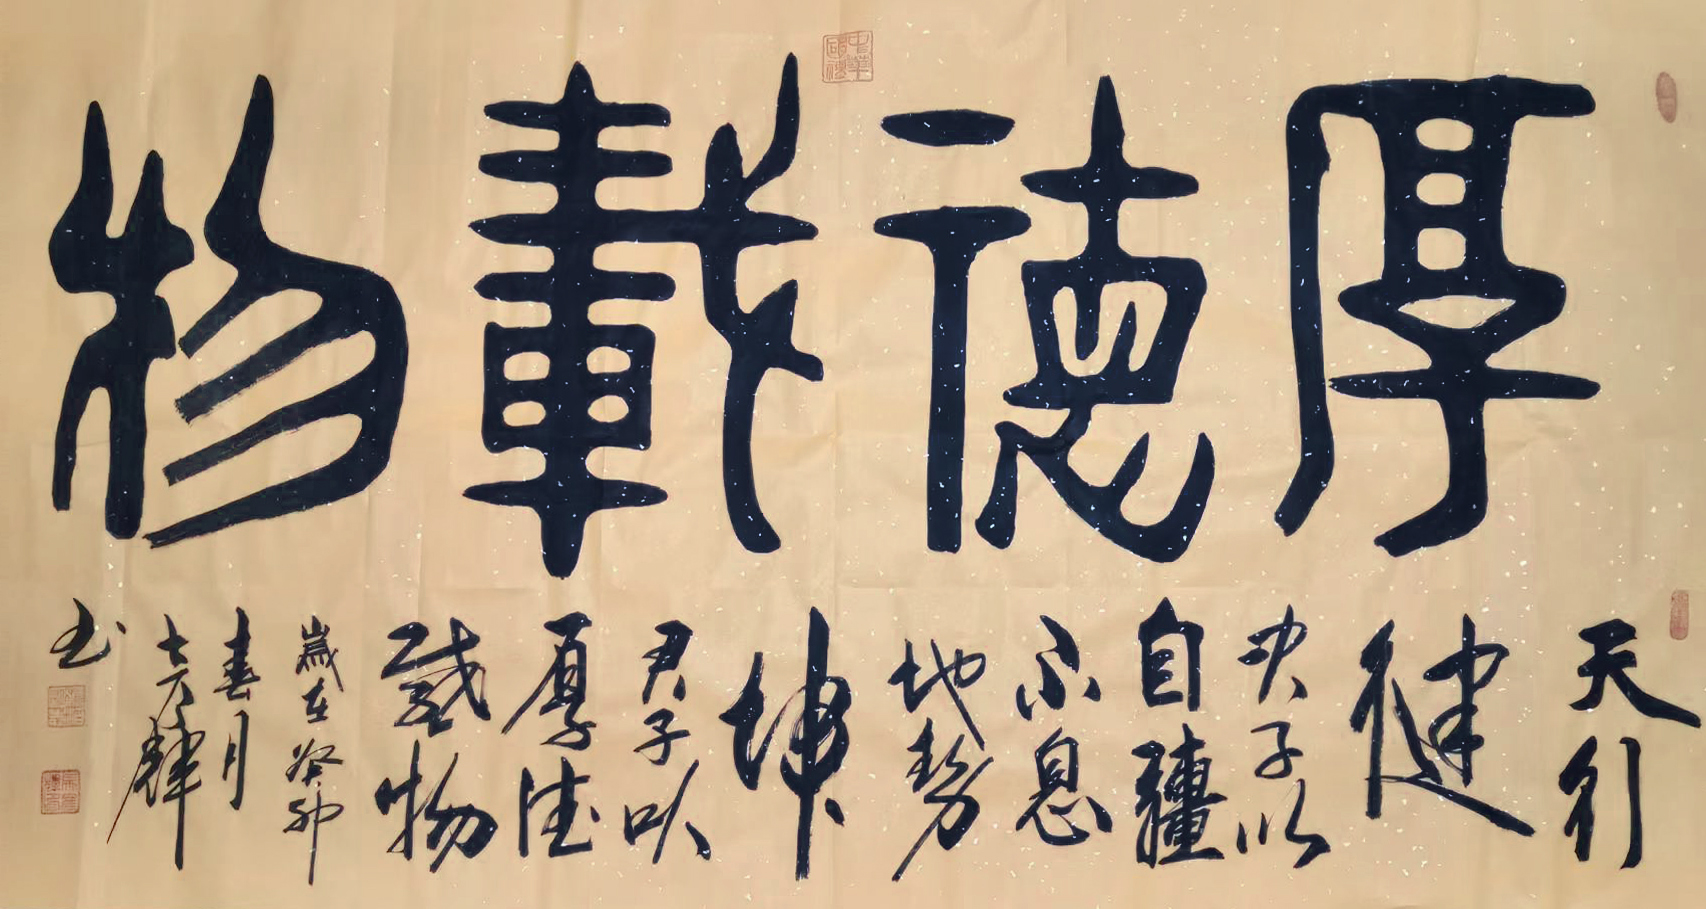 厚德载物
天行
健
君子以
自疆
不息
地势
坤
君子以
厚德
载物
歲在癸卯
春月
书